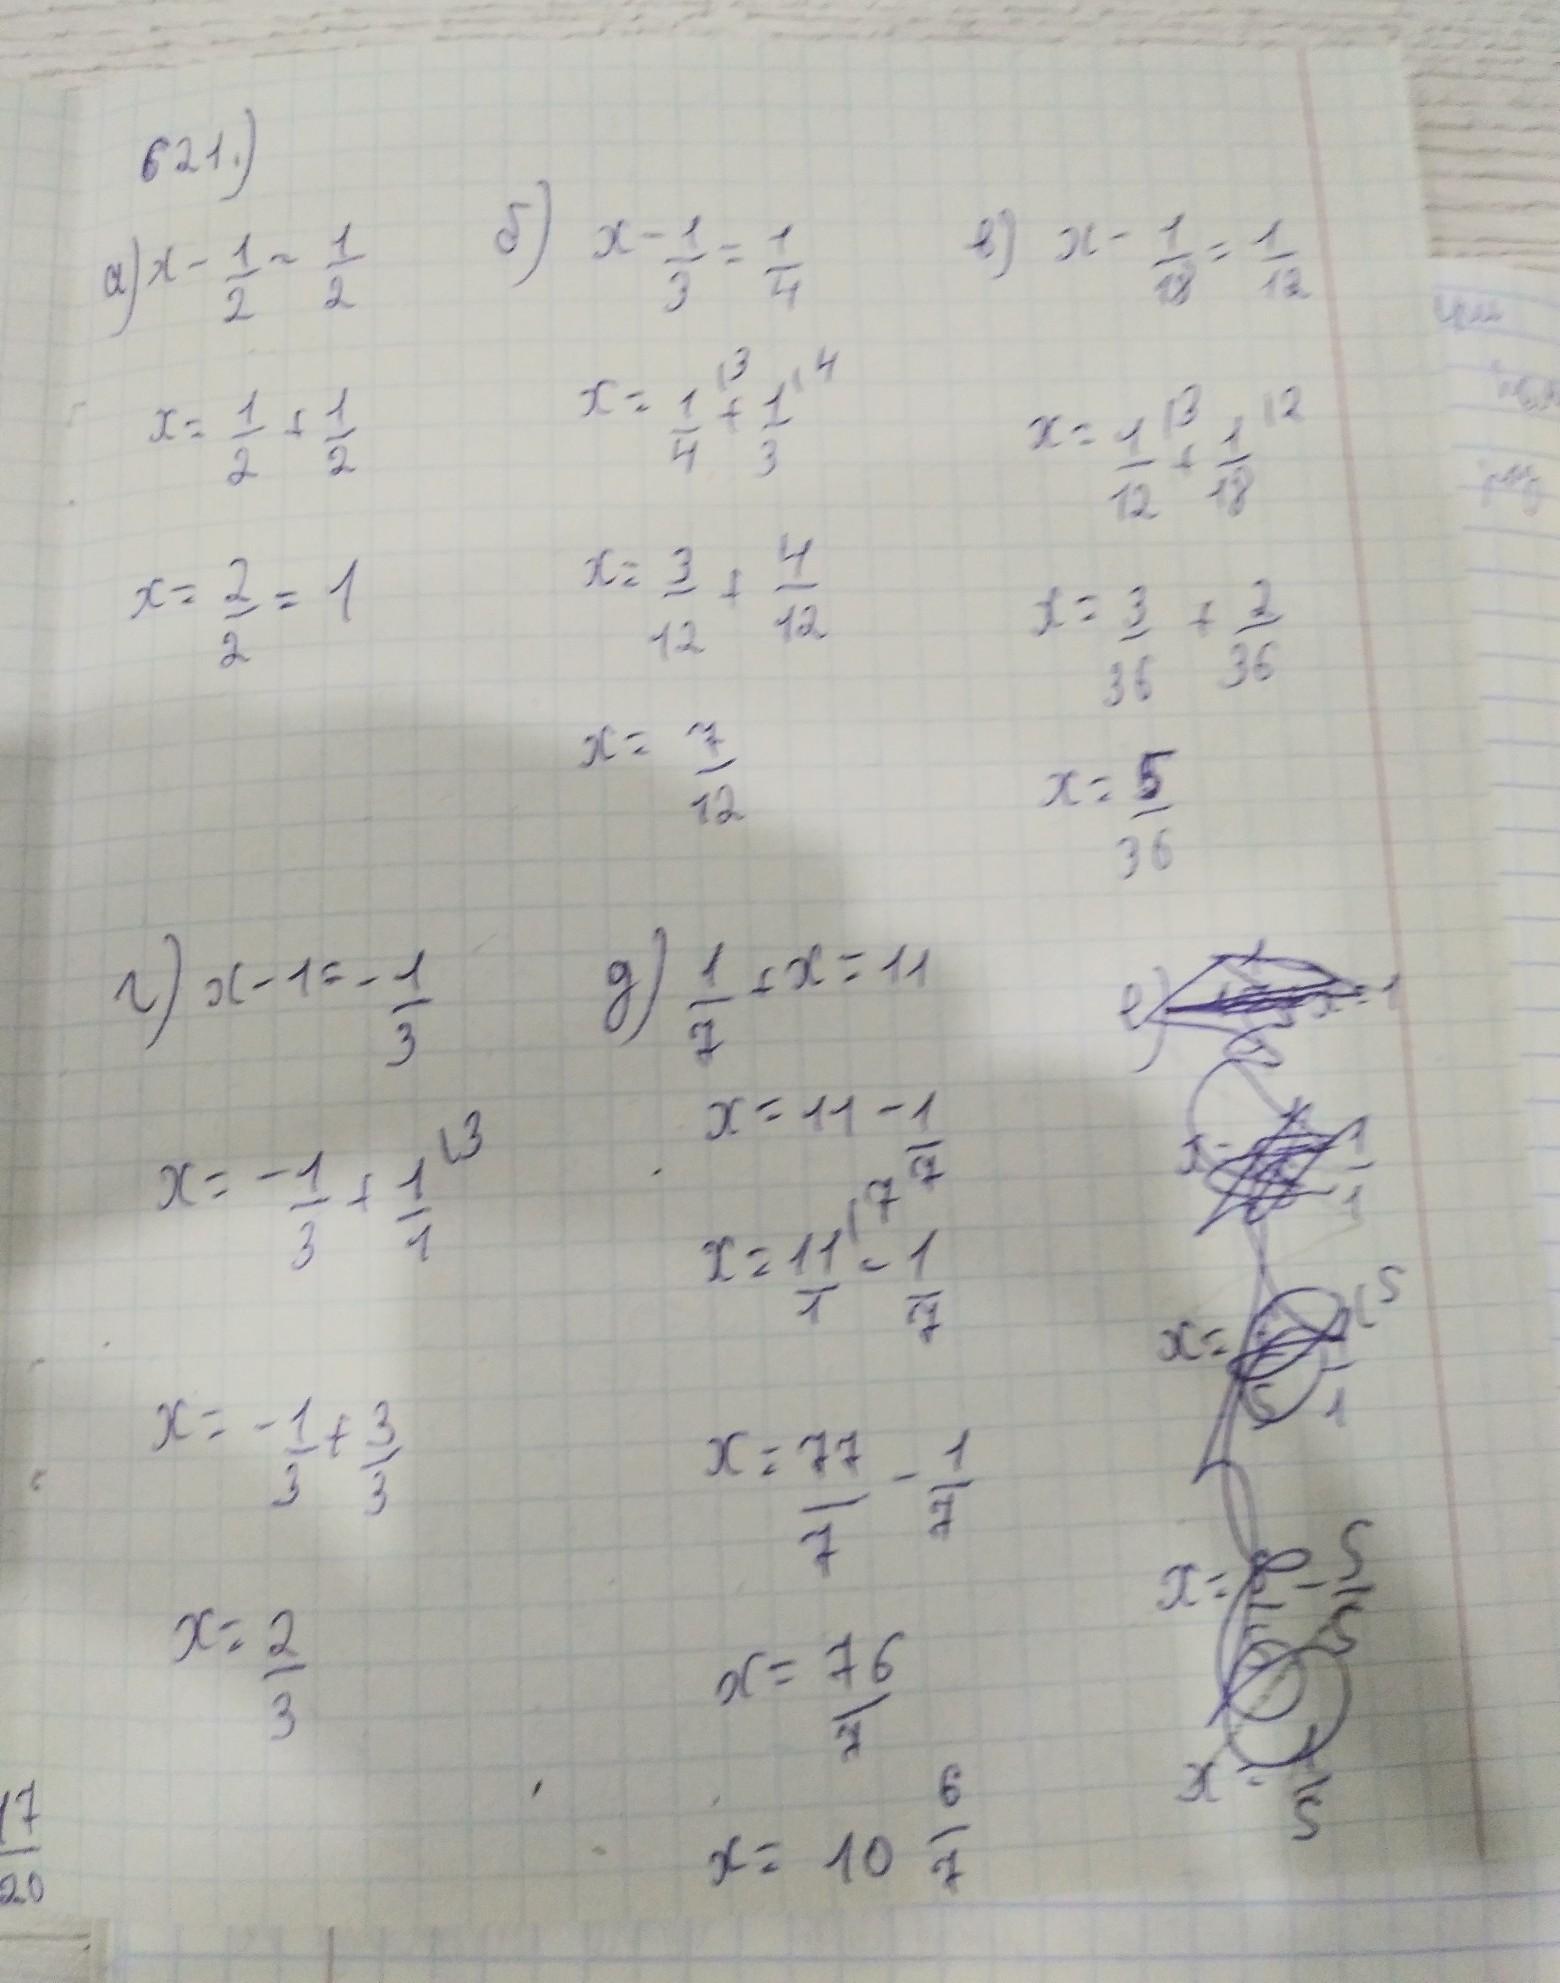 621.)
а) x - 1/2 = 1/2
x = 1/2 + 1/2
x = 2/2 = 1
б) x - 1/3 = 1/4
x = 1/4 (3 + 1/3 (4
x = 3/12 + 4/12
x = 7/12
в) x - 1/18 = 1/12
x = 1/12 (3 + 1/18 (2
x = 3/36 + 2/36
x = 5/36
г) x - 1 = - 1/3
x = - 1/3 + 1/1 (3
x = - 1/3 + 3/3
x = 2/3
д) 1/7 + x = 11
x = 11 - 1/7
x = 11/1 (7 - 1/7
x = 77/7 - 1/7
x = 76/7
x = 10 6/7
е)
x =
x =
x = - 5/5
x =
17/20